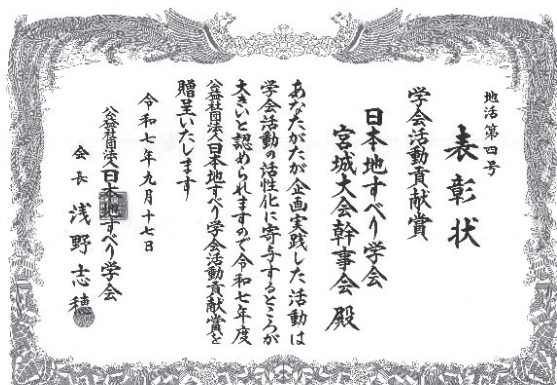 地活第四号
表彰状
学会活動貢献賞
日本地すべり学会
宮城大会幹事会 殿
あなたがたが企画実践した活動は
学会活動の活性化に寄与するところが
大きいと認められますので令和七年度
公益社団法人日本地すべり学会活動貢献賞を
贈呈いたします
令和七年九月十七日
公益社団法人日本地すべり学会
会長 浅野志穂